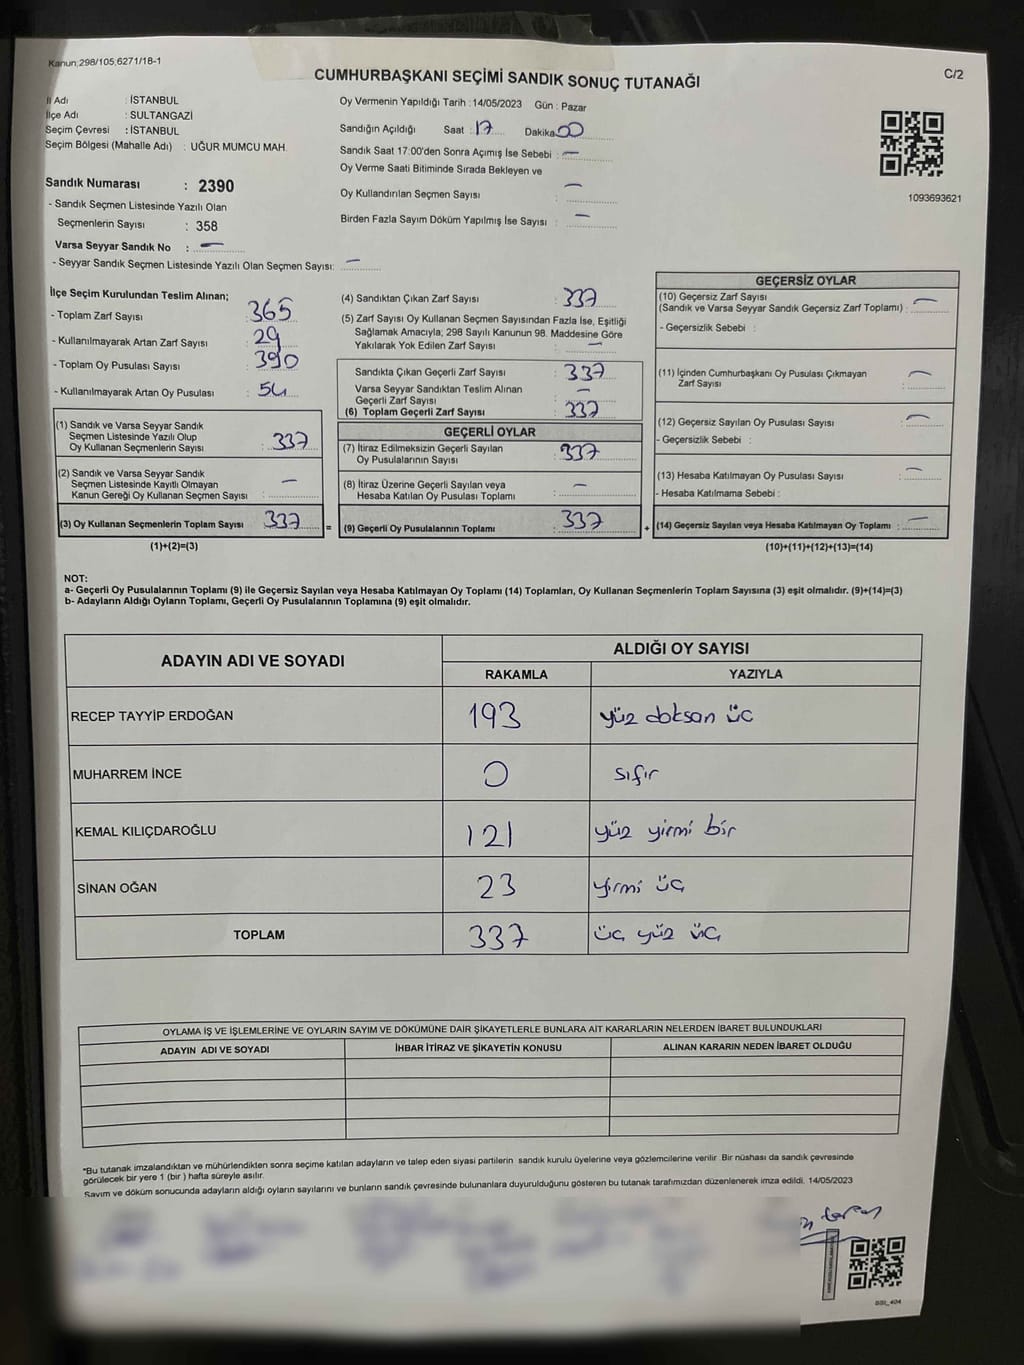 Kanun;298/105,6271/18-1
CUMHURBAŞKANI SEÇİMİ SANDIK SONUÇ TUTANAĞI
C/2
İl Adı : İSTANBUL
İlçe Adı : SULTANGAZİ
Seçim Çevresi : İSTANBUL
Seçim Bölgesi (Mahalle Adı) : UĞUR MUMCU MAH.
Sandık Numarası : 2390
- Sandık Seçmen Listesinde Yazılı Olan
Seçmenlerin Sayısı : 358
Varsa Seyyar Sandık No : —
- Seyyar Sandık Seçmen Listesinde Yazılı Olan Seçmen Sayısı: —
Oy Vermenin Yapıldığı Tarih : 14/05/2023 Gün : Pazar
Sandığın Açıldığı Saat : 17 Dakika 00
Sandık Saat 17:00'den Sonra Açımış İse Sebebi : —
Oy Verme Saati Bitiminde Sırada Bekleyen ve
Oy Kullandırılan Seçmen Sayısı : —
Birden Fazla Sayım Döküm Yapılmış İse Sayısı : —
1093693621
İlçe Seçim Kurulundan Teslim Alınan;
- Toplam Zarf Sayısı : 365
- Kullanılmayarak Artan Zarf Sayısı : 29
- Toplam Oy Pusulası Sayısı : 390
- Kullanılmayarak Artan Oy Pusulası : 54
(1) Sandık ve Varsa Seyyar Sandık
Seçmen Listesinde Yazılı Olup
Oy Kullanan Seçmenlerin Sayısı : 337
(2) Sandık ve Varsa Seyyar Sandık
Seçmen Listesinde Kayıtlı Olmayan
Kanun Gereği Oy Kullanan Seçmen Sayısı : —
(3) Oy Kullanan Seçmenlerin Toplam Sayısı : 337
(1)+(2)=(3)
(4) Sandıktan Çıkan Zarf Sayısı : 337
(5) Zarf Sayısı Oy Kullanan Seçmen Sayısından Fazla İse, Eşitliği
Sağlamak Amacıyla; 298 Sayılı Kanunun 98. Maddesine Göre
Yakılarak Yok Edilen Zarf Sayısı : —
Sandıkta Çıkan Geçerli Zarf Sayısı : 337
Varsa Seyyar Sandıktan Teslim Alınan
Geçerli Zarf Sayısı : —
(6) Toplam Geçerli Zarf Sayısı : 337
GEÇERLİ OYLAR
(7) İtiraz Edilmeksizin Geçerli Sayılan
Oy Pusulalarının Sayısı : 337
(8) İtiraz Üzerine Geçerli Sayılan veya
Hesaba Katılan Oy Pusulası Toplamı : —
= (9) Geçerli Oy Pusulalarının Toplamı : 337
GEÇERSİZ OYLAR
(10) Geçersiz Zarf Sayısı
(Sandık ve Varsa Seyyar Sandık Geçersiz Zarf Toplamı) : —
- Geçersizlik Sebebi :
(11) İçinden Cumhurbaşkanı Oy Pusulası Çıkmayan
Zarf Sayısı : —
(12) Geçersiz Sayılan Oy Pusulası Sayısı : —
- Geçersizlik Sebebi :
(13) Hesaba Katılmayan Oy Pusulası Sayısı : —
- Hesaba Katılmama Sebebi :
+ (14) Geçersiz Sayılan veya Hesaba Katılmayan Oy Toplamı : —
(10)+(11)+(12)+(13)=(14)
NOT:
a- Geçerli Oy Pusulalarının Toplamı (9) ile Geçersiz Sayılan veya Hesaba Katılmayan Oy Toplamı (14) Toplamları, Oy Kullanan Seçmenlerin Toplam Sayısına (3) eşit olmalıdır. (9)+(14)=(3)
b- Adayların Aldığı Oyların Toplamı, Geçerli Oy Pusulalarının Toplamına (9) eşit olmalıdır.
ADAYIN ADI VE SOYADI
ALDIĞI OY SAYISI
RAKAMLA YAZIYLA
RECEP TAYYİP ERDOĞAN 193 yüz doksan üç
MUHARREM İNCE 0 sıfır
KEMAL KILIÇDAROĞLU 121 yüz yirmi bir
SİNAN OĞAN 23 yirmi üç
TOPLAM 337 üç yüz üç
OYLAMA İŞ VE İŞLEMLERİNE VE OYLARIN SAYIM VE DÖKÜMÜNE DAİR ŞİKAYETLERLE BUNLARA AİT KARARLARIN NELERDEN İBARET BULUNDUKLARI
ADAYIN ADI VE SOYADI İHBAR İTİRAZ VE ŞİKAYETİN KONUSU ALINAN KARARIN NEDEN İBARET OLDUĞU
*Bu tutanak imzalandıktan ve mühürlendikten sonra seçime katılan adayların ve talep eden siyasi partilerin sandık kurulu üyelerine veya gözlemcilerine verilir. Bir nüshası da sandık çevresinde
görülecek bir yere 1 (bir ) hafta süreyle asılır.
Sayım ve döküm sonucunda adayların aldığı oyların sayılarını ve bunların sandık çevresinde bulunanlara duyurulduğunu gösteren bu tutanak tarafımızdan düzenlenerek imza edildi. 14/05/2023